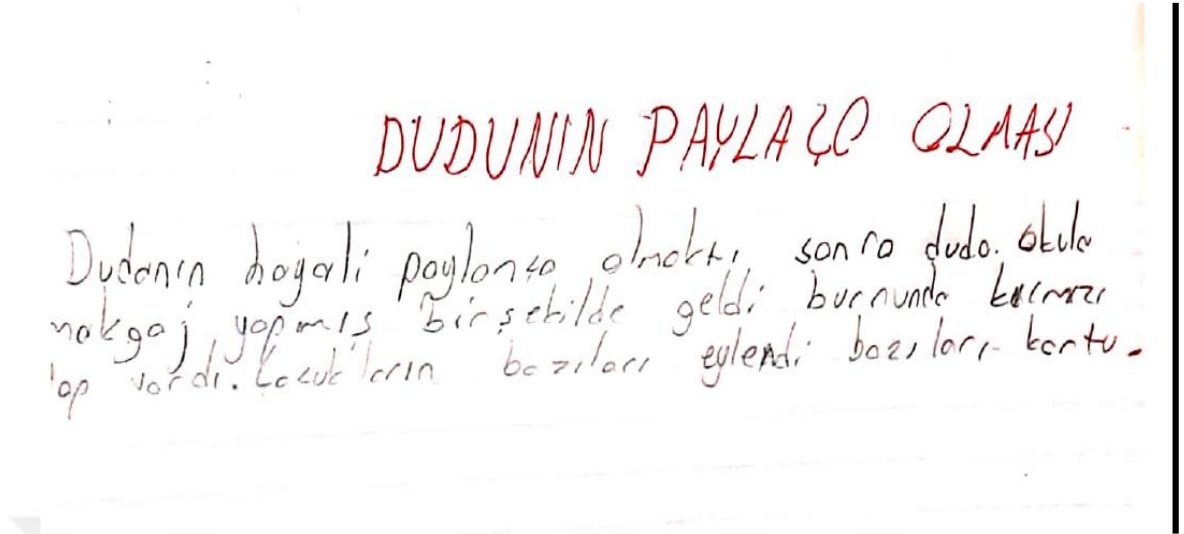 DUDUNIN PAYLAÇO OLMASI
Dudanın hayali poylanço olmaktı sonra dudo. Okula
makgaj yapmış birşekilde geldi burnunda kırmızı
top vardı. Çocukların bazıları eylendi bazıları kortu.